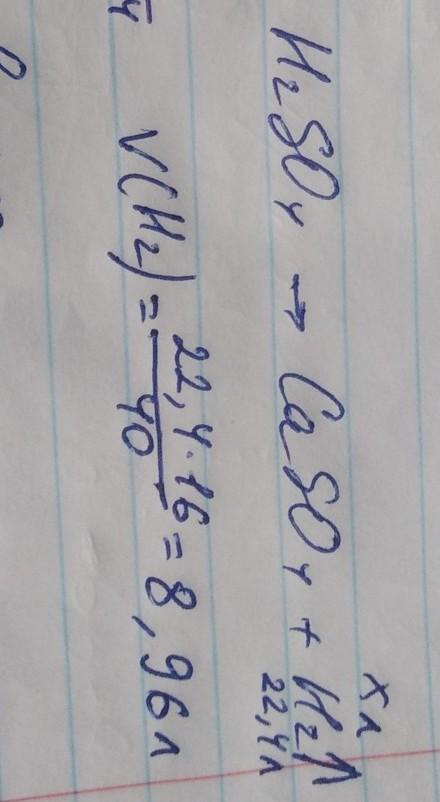 х л
H₂SO₄ → CaSO₄ + H₂↑
22,4 л
V(H₂) = 22,4 · 16 / 40 = 8,96 л